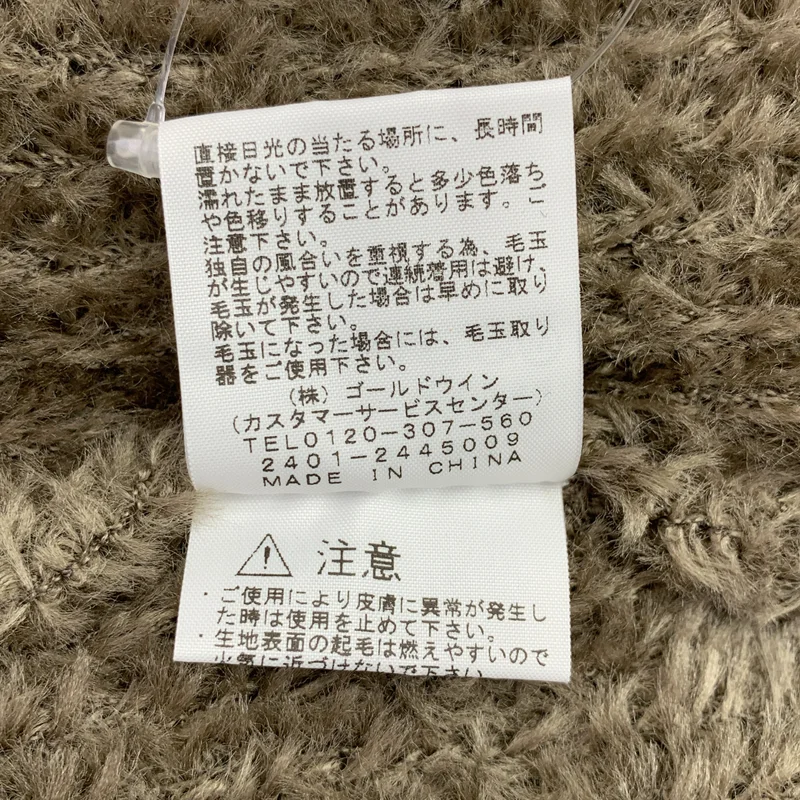 直接日光の当たる場所に、長時間
置かないで下さい。
濡れたまま放置すると多少色落ち
や色移りすることがあります。ご
注意下さい。
独自の風合いを重視する為、毛玉
が生じやすいので連続着用は避け、
毛玉が発生した場合は早めに取り
除いて下さい。
毛玉になった場合には、毛玉取り
器をご使用下さい。
(株)ゴールドウイン
(カスタマーサービスセンター)
TEL0120-307-560
2401-2445009
MADE IN CHINA
注意
・ご使用により皮膚に異常が発生し
た時は使用を止めて下さい。
・生地表面の起毛は燃えやすいので
火気に近づけないで下さい。